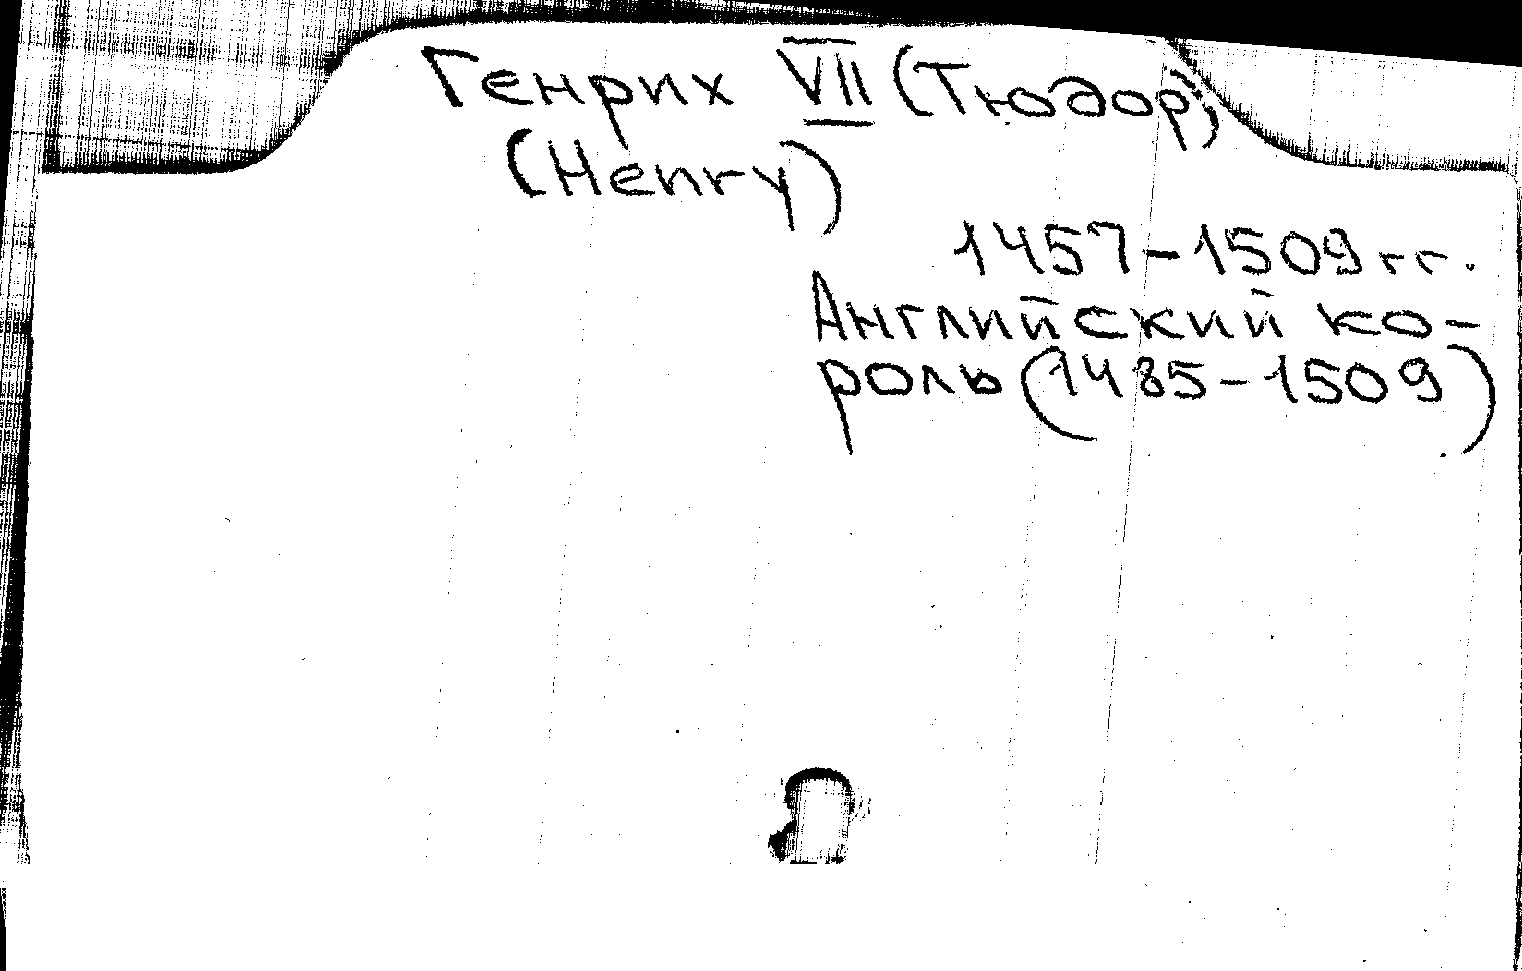 Генрих VII (Тюдор)
(Henry)
1457-1509 гг.
Английский ко-
роль (1485-1509)